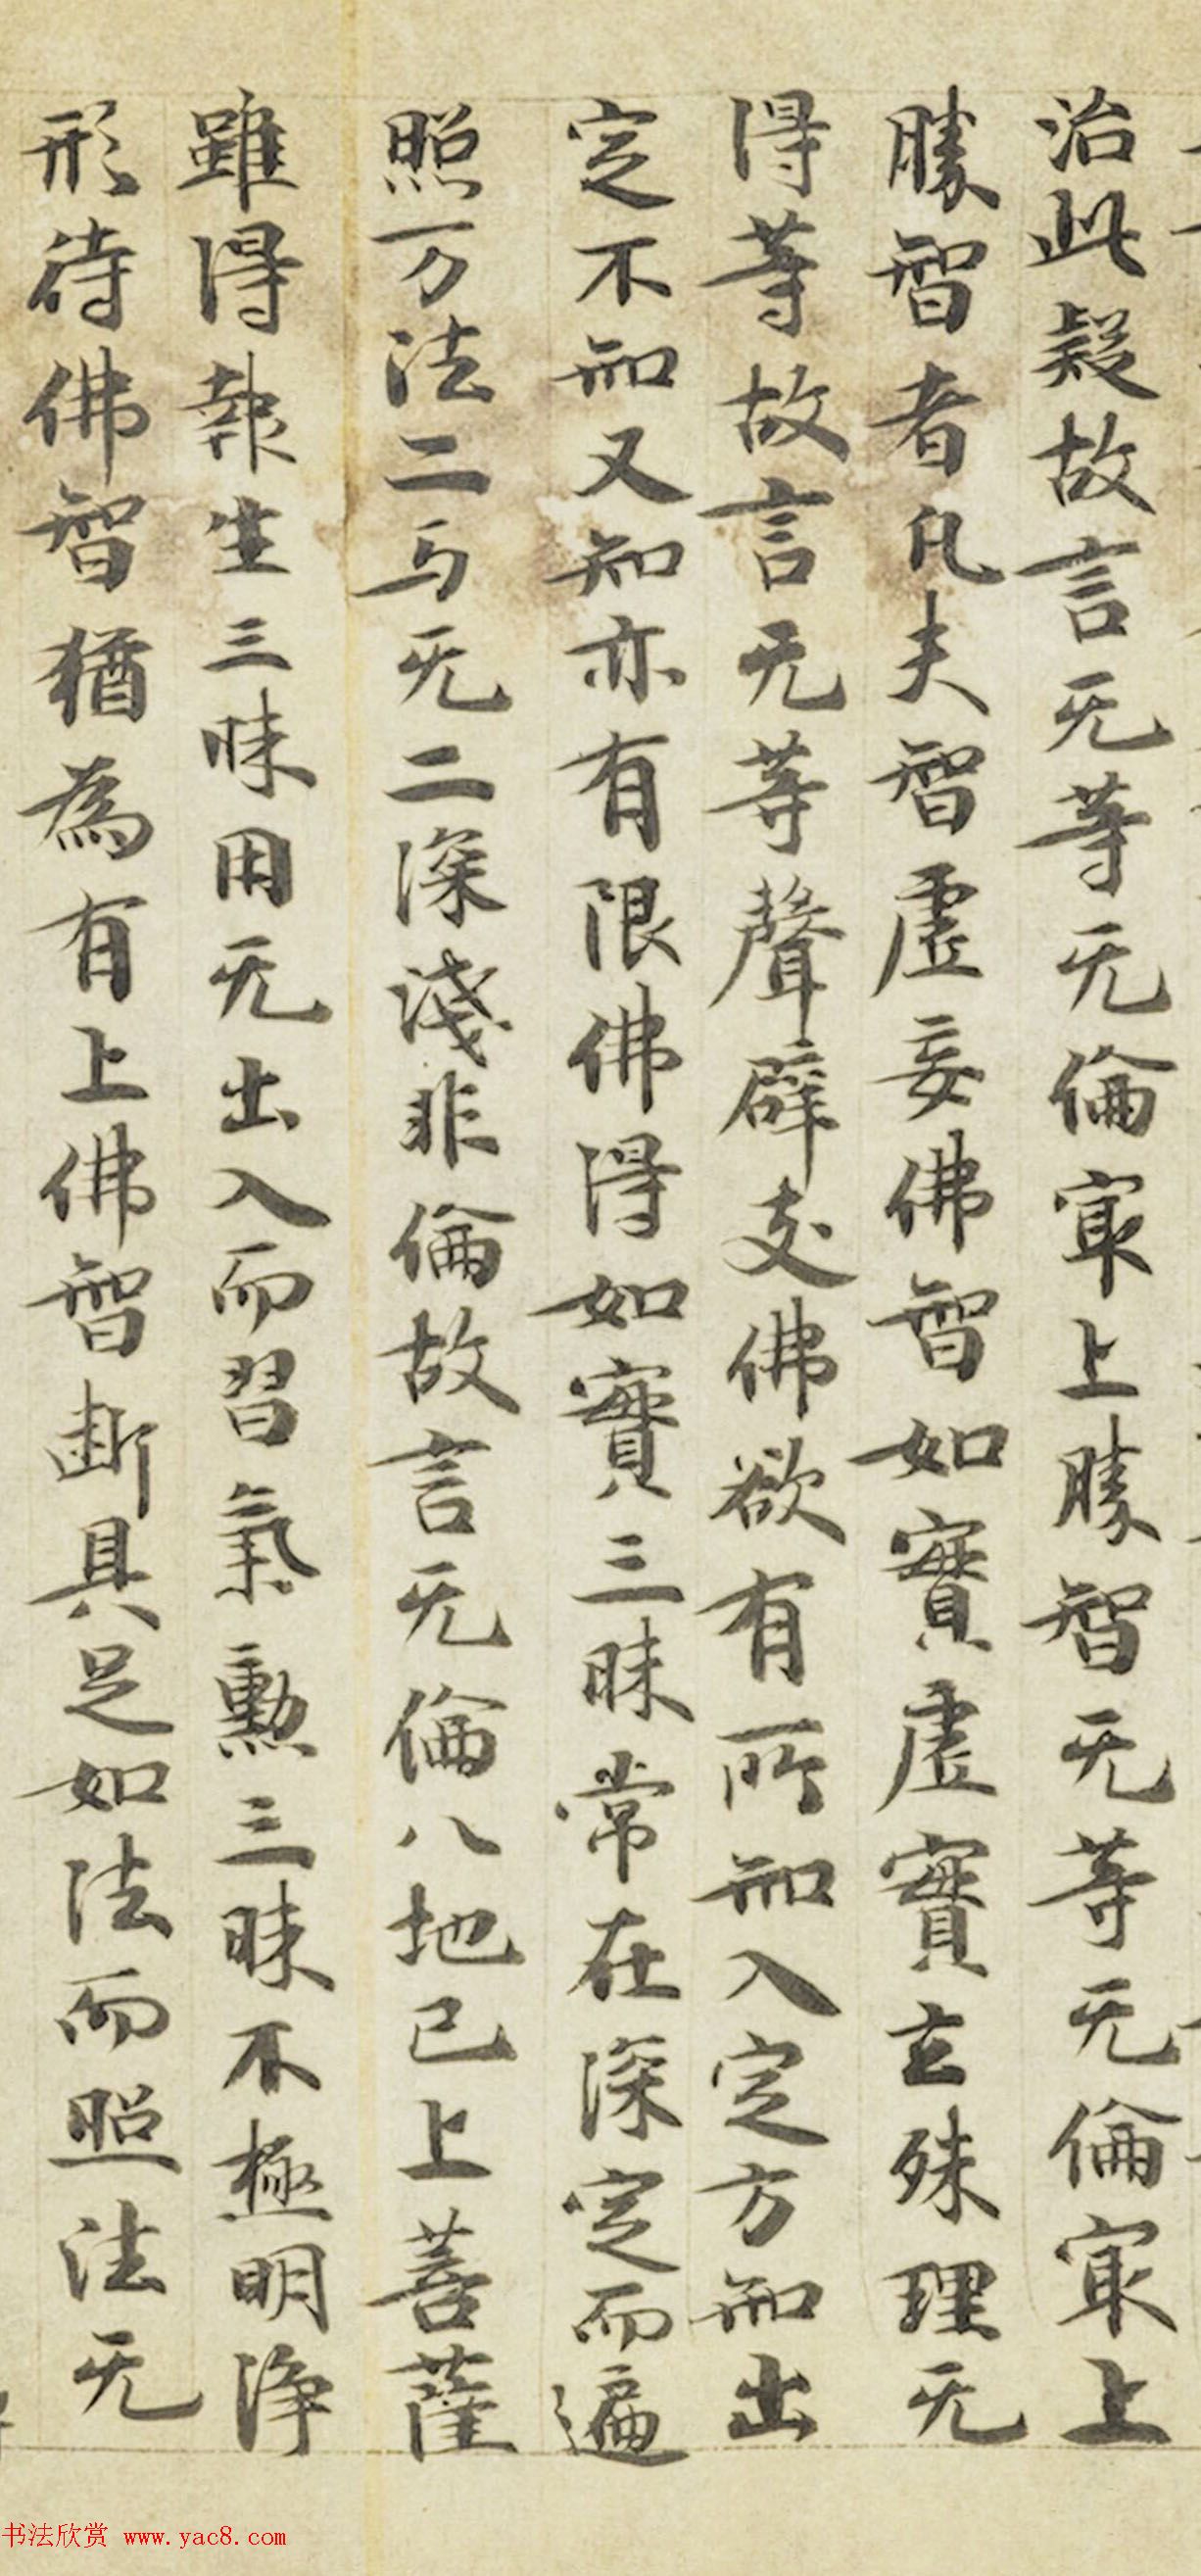 治此疑故言无等无倫寂上勝智无等无倫寂上
勝智者凡夫智虛妄佛智如實虛實玄殊理无
得等故言无等聲辟支佛欲有所知入定方知出
定不知又知亦有限佛得如實三昧常在深定而遍
照万法二与无二深淺非倫故言无倫八地已上菩薩
雖得報生三昧用无出入而習氣勳三昧不極明淨
形待佛智猶為有上佛智斷具足如法而照法无
书法欣赏 www.yac8.com